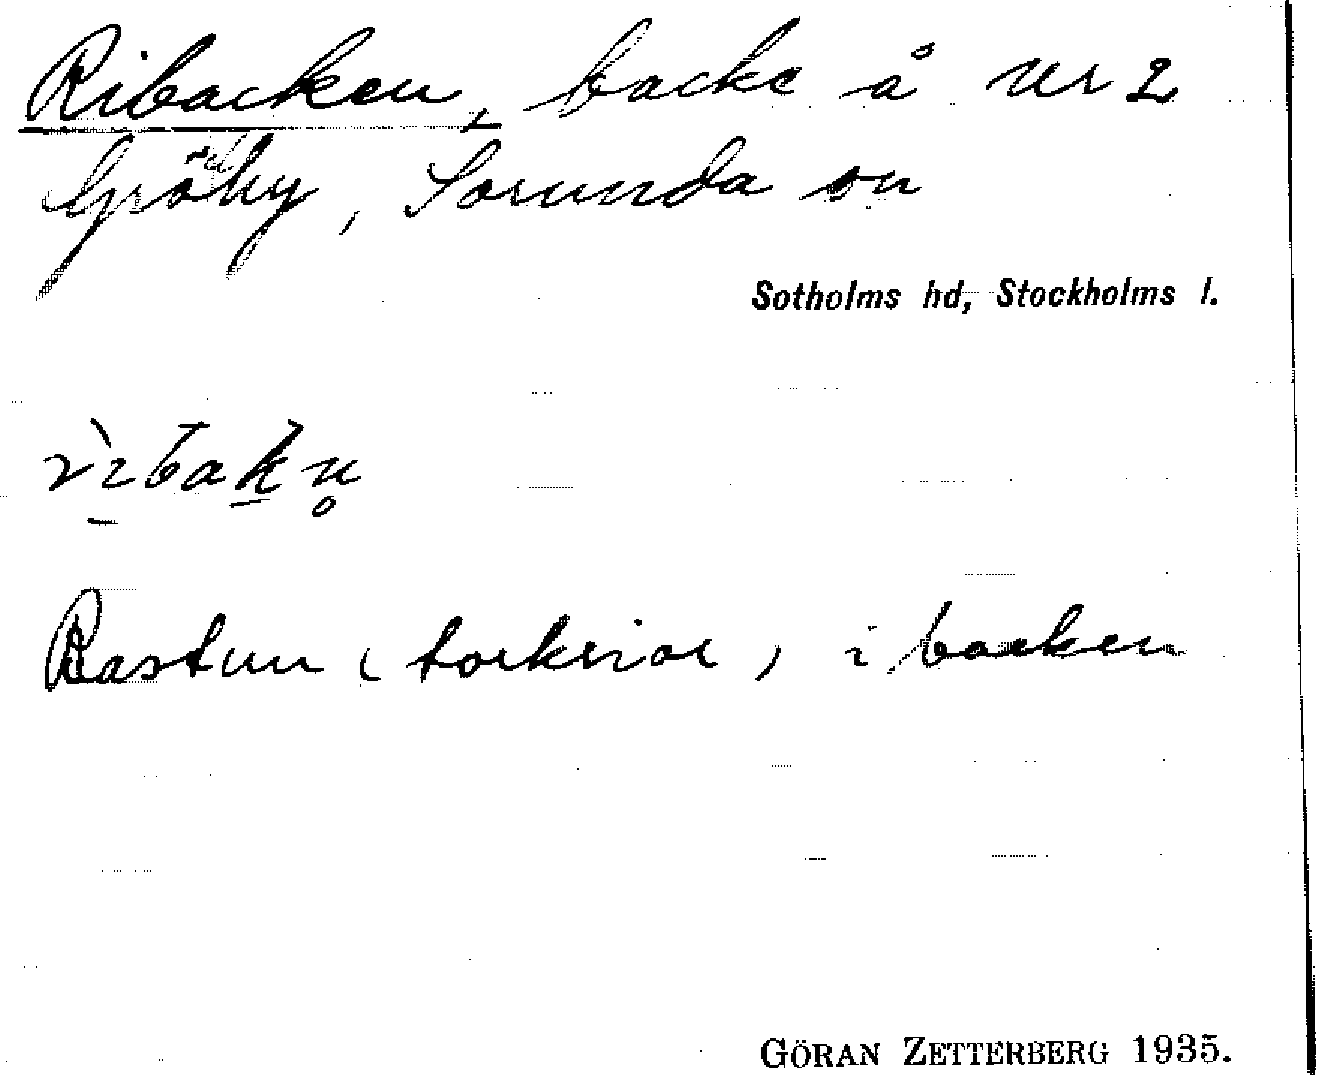 Ribacken, backe å nr 2
Gröby, Sorunda sn
Sotholms hd, Stockholms l.
rìbakn̥
Bastun (torkrior) i backen
GÖRAN ZETTERBERG 1935.